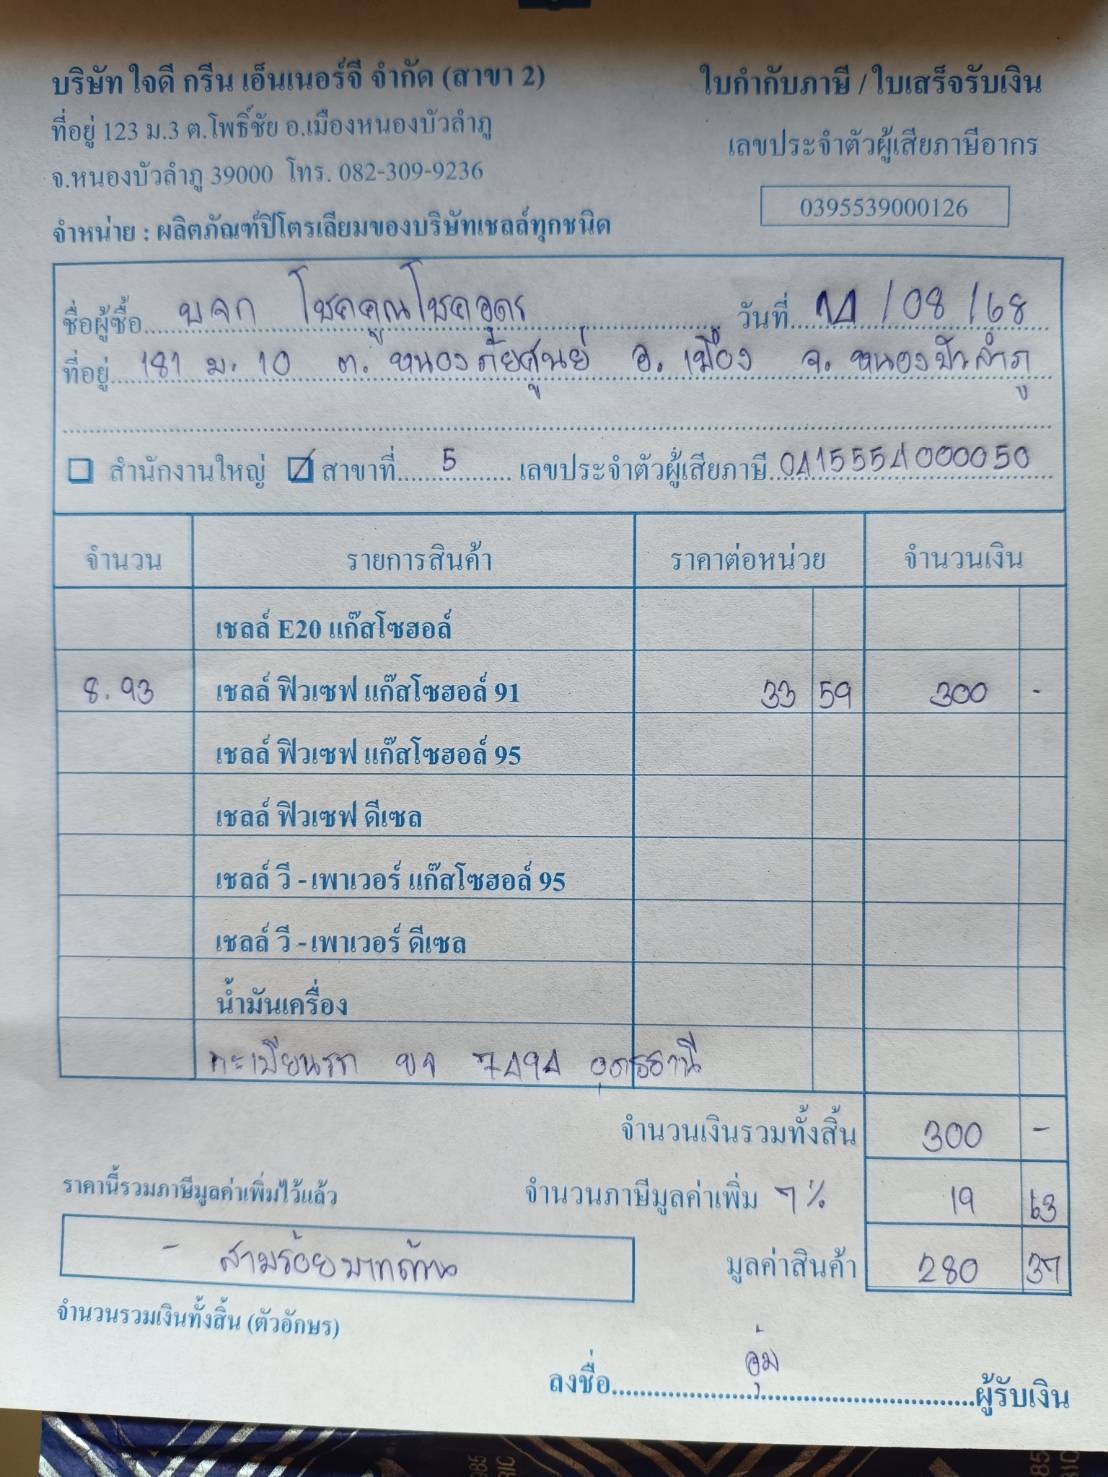 บริษัท ใจดี กรีน เอ็นเนอร์จี จำกัด (สาขา 2)
ใบกำกับภาษี / ใบเสร็จรับเงิน
ที่อยู่ 123 ม.3 ต.โพธิ์ชัย อ.เมืองหนองบัวลำภู
เลขประจำตัวผู้เสียภาษีอากร
จ.หนองบัวลำภู 39000 โทร. 082-309-9236
0395539000126
จำหน่าย : ผลิตภัณฑ์ปิโตรเลียมของบริษัทเชลล์ทุกชนิด
ชื่อผู้ซื้อ บจก โชคคูณโชคอุดร วันที่ 14 / 08 / 68
ที่อยู่ 181 ม. 10 ต. หนองภัยศูนย์ อ. เมือง จ. หนองบัวลำภู
สำนักงานใหญ่ สาขาที่ 5 เลขประจำตัวผู้เสียภาษี 0415554000050
จำนวน รายการสินค้า ราคาต่อหน่วย จำนวนเงิน
เชลล์ E20 แก๊สโซฮอล์
8.93 เชลล์ ฟิวเซฟ แก๊สโซฮอล์ 91 33 59 300 -
เชลล์ ฟิวเซฟ แก๊สโซฮอล์ 95
เชลล์ ฟิวเซฟ ดีเซล
เชลล์ วี - เพาเวอร์ แก๊สโซฮอล์ 95
เชลล์ วี - เพาเวอร์ ดีเซล
น้ำมันเครื่อง
ทะเบียนรถ ขจ 7494 อุดรธานี
จำนวนเงินรวมทั้งสิ้น 300 -
ราคานี้รวมภาษีมูลค่าเพิ่มไว้แล้ว จำนวนภาษีมูลค่าเพิ่ม 7% 19 63
- สามร้อยบาทถ้วน
มูลค่าสินค้า 280 37
จำนวนรวมเงินทั้งสิ้น (ตัวอักษร)
ลงชื่อ อุ้ม ผู้รับเงิน